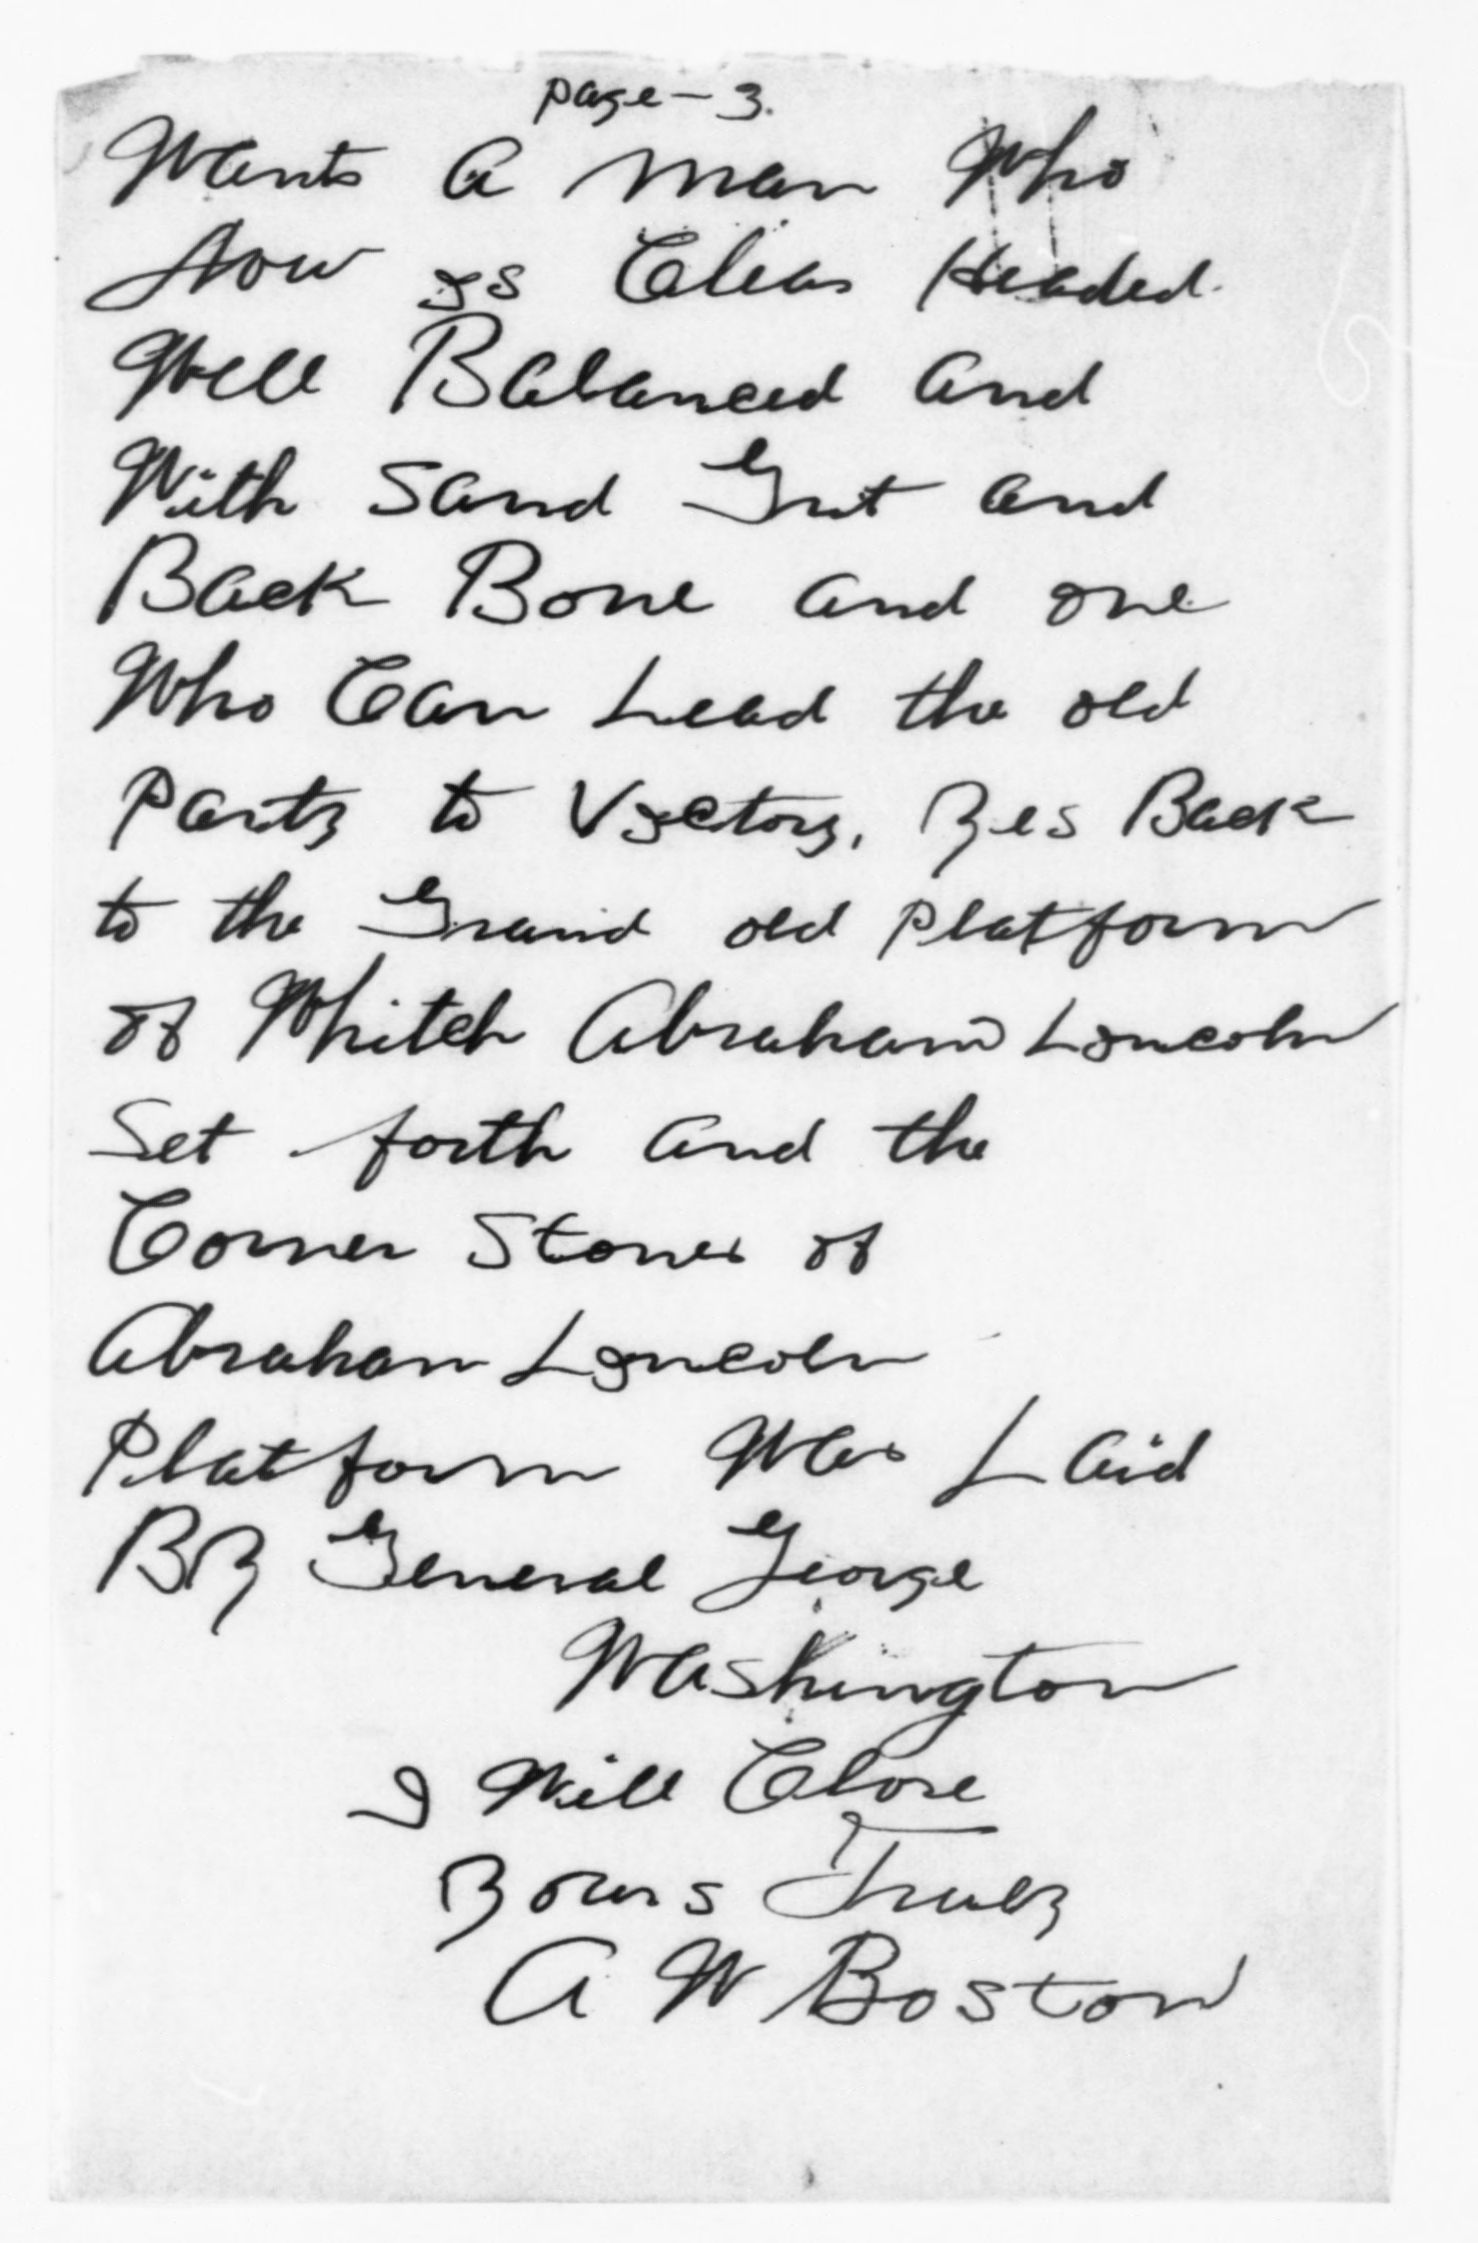 page - 3.
Wants A man Who
Now is Clear Headed.
Well Balanced and
With Sand Grit and
Back Bone and one
Who Can Lead the old
Party to Victory, Yes Back
to the Grand old Platform
of Whitch Abraham Lincoln
Set forth and the
Corner Stones of
Abraham Lincoln
Platform Was Laid
By General George
Washington
I Will Close
Yours Truly
A W Boston